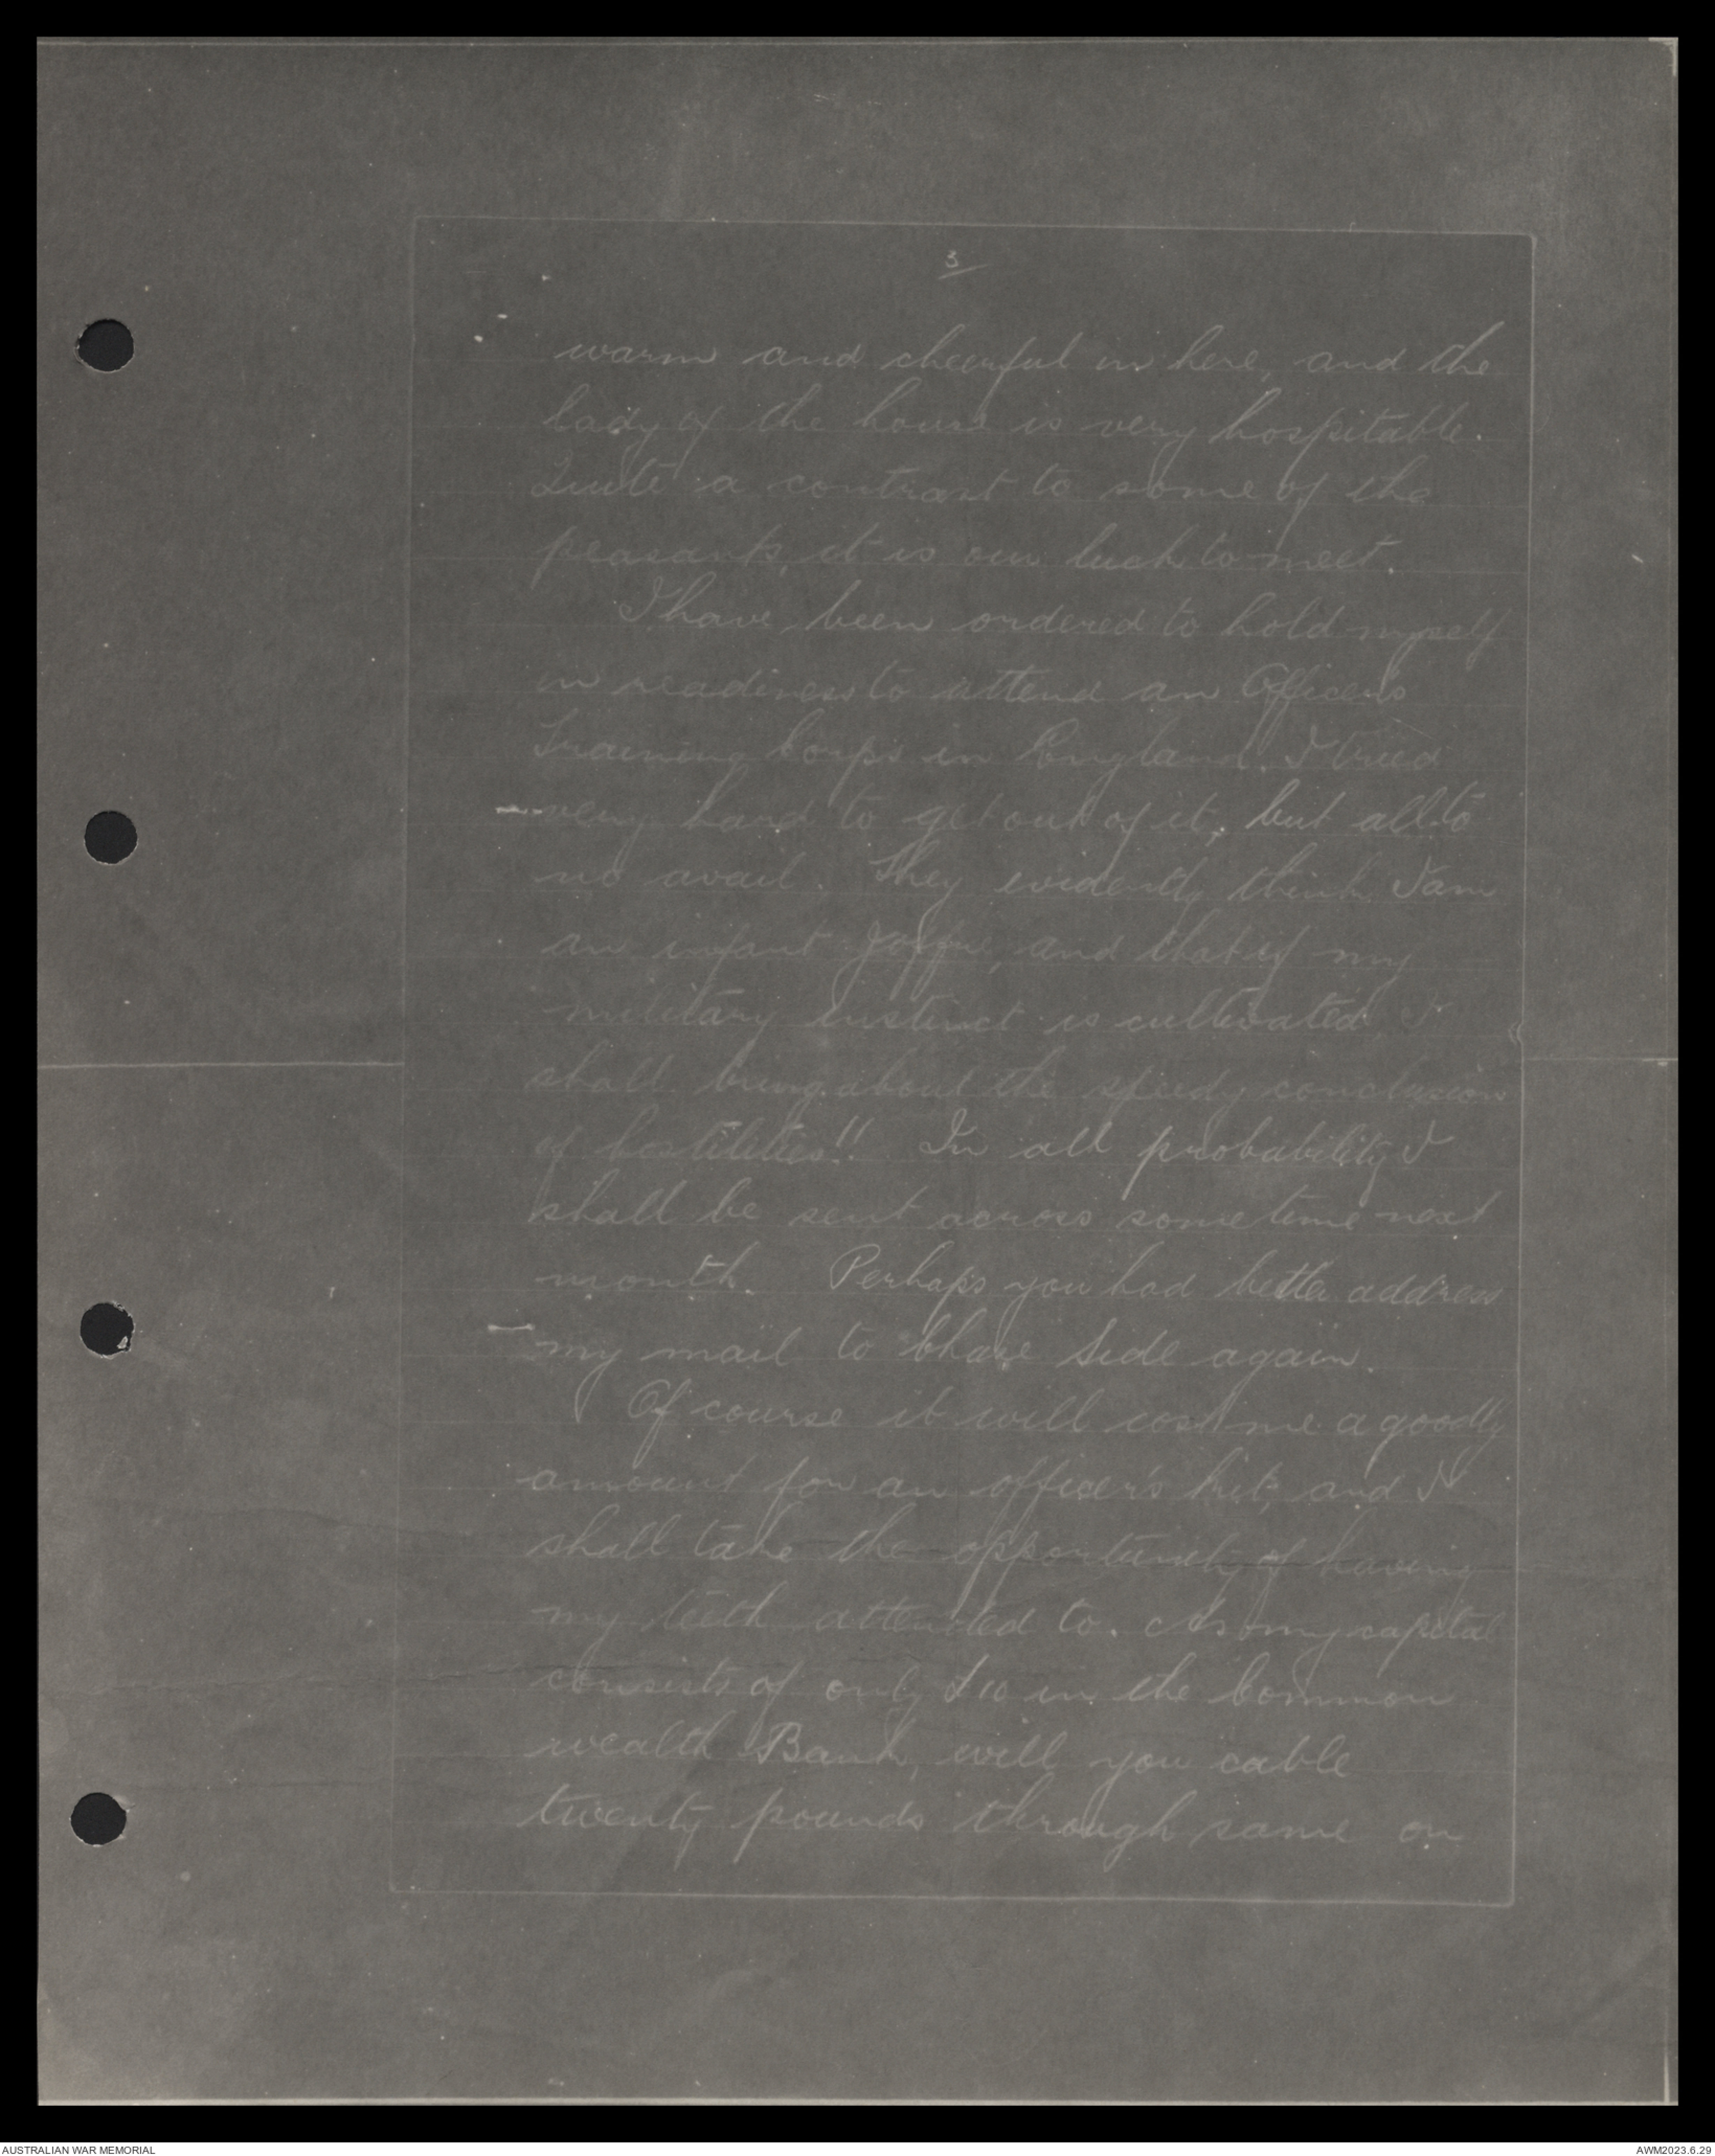 3
warm and cheerful in here, and the
lady of the house is very hospitable.
Quite a contrast to some of the
peasants, it is our luck to meet.
I have been ordered to hold myself
in readiness to attend an Officers
Training Corps in England. I tried
very hard to get out of it, but all to
no avail. They evidently think I am
an infant Joffre, and that if my
military instinct is cultivated I
shall bring about the speedy conclusion
of hostilities!! In all probability I
shall be sent across sometime next
month. Perhaps you had better address
my mail to Shaw Side again.
Of course it will cost me a goodly
amount for an officer's kit, and I
shall take the opportunity of having
my teeth attended to. As my capital
consists of only £10 in the Common
wealth Bank, will you cable
twenty pounds through same on
AUSTRALIAN WAR MEMORIAL
AWM2023.6.29